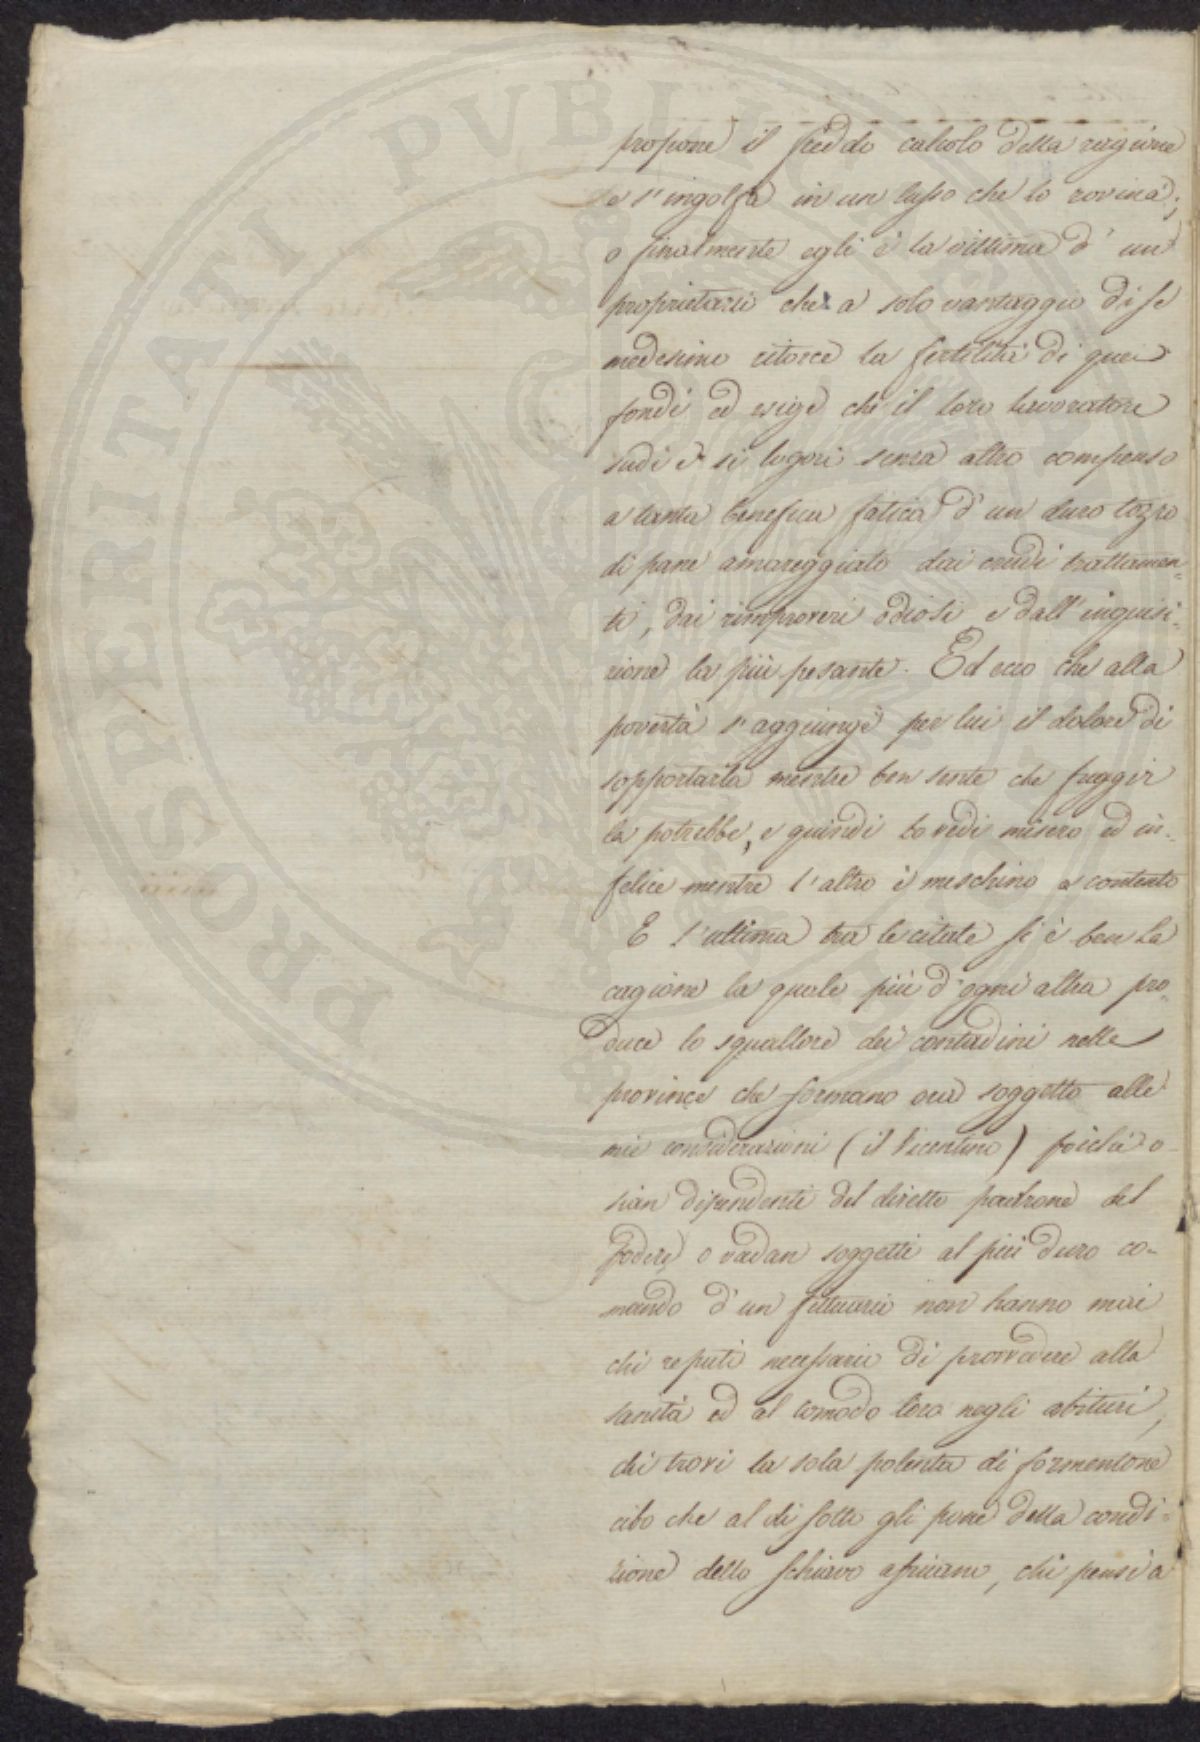 propone il freddo calcolo della ragione
e s'ingolfa in un lusso che lo rovina;
o finalmente egli è la vittima d'un
proprietario che a solo vantaggio di se
medesimo ritorce la fertilità di quei
fondi ed esige che il loro lavoratore
sudi e si logori senza altro compenso
a tanta benefica fatica d'un duro tozzo
di pane amareggiato dai crudi trattamen=
ti, dai rimproveri odiosi e dall'inquisi=
zione la più pesante. Ed ecco che alla
povertà s'aggiunge per lui il dolore di
sopportarla mentre ben sente che fuggir
la potrebbe, e quindi lo vedi misero ed in=
felice mentre l'altro è meschino e contento
E l'ultima tra le citate si è ben la
cagione la quale più d'ogni altra pro=
duce lo squallore dei contadini nelle
province che formano ora soggetto alle
mie considerazioni (il Vicentino) poichè o
sian dipendenti del diretto padrone del
podere o vadan soggetti al più duro co=
mando d'un fittuario non hanno mai
chi reputi necessario di provvedere alla
sanità ed al comodo loro negli abituri,
chi trovi la sola polenta di formentone
cibo che al di sotto gli pone della condi=
zione dello schiavo africano, chi pensi a
PROSPERITATI PVBLIC